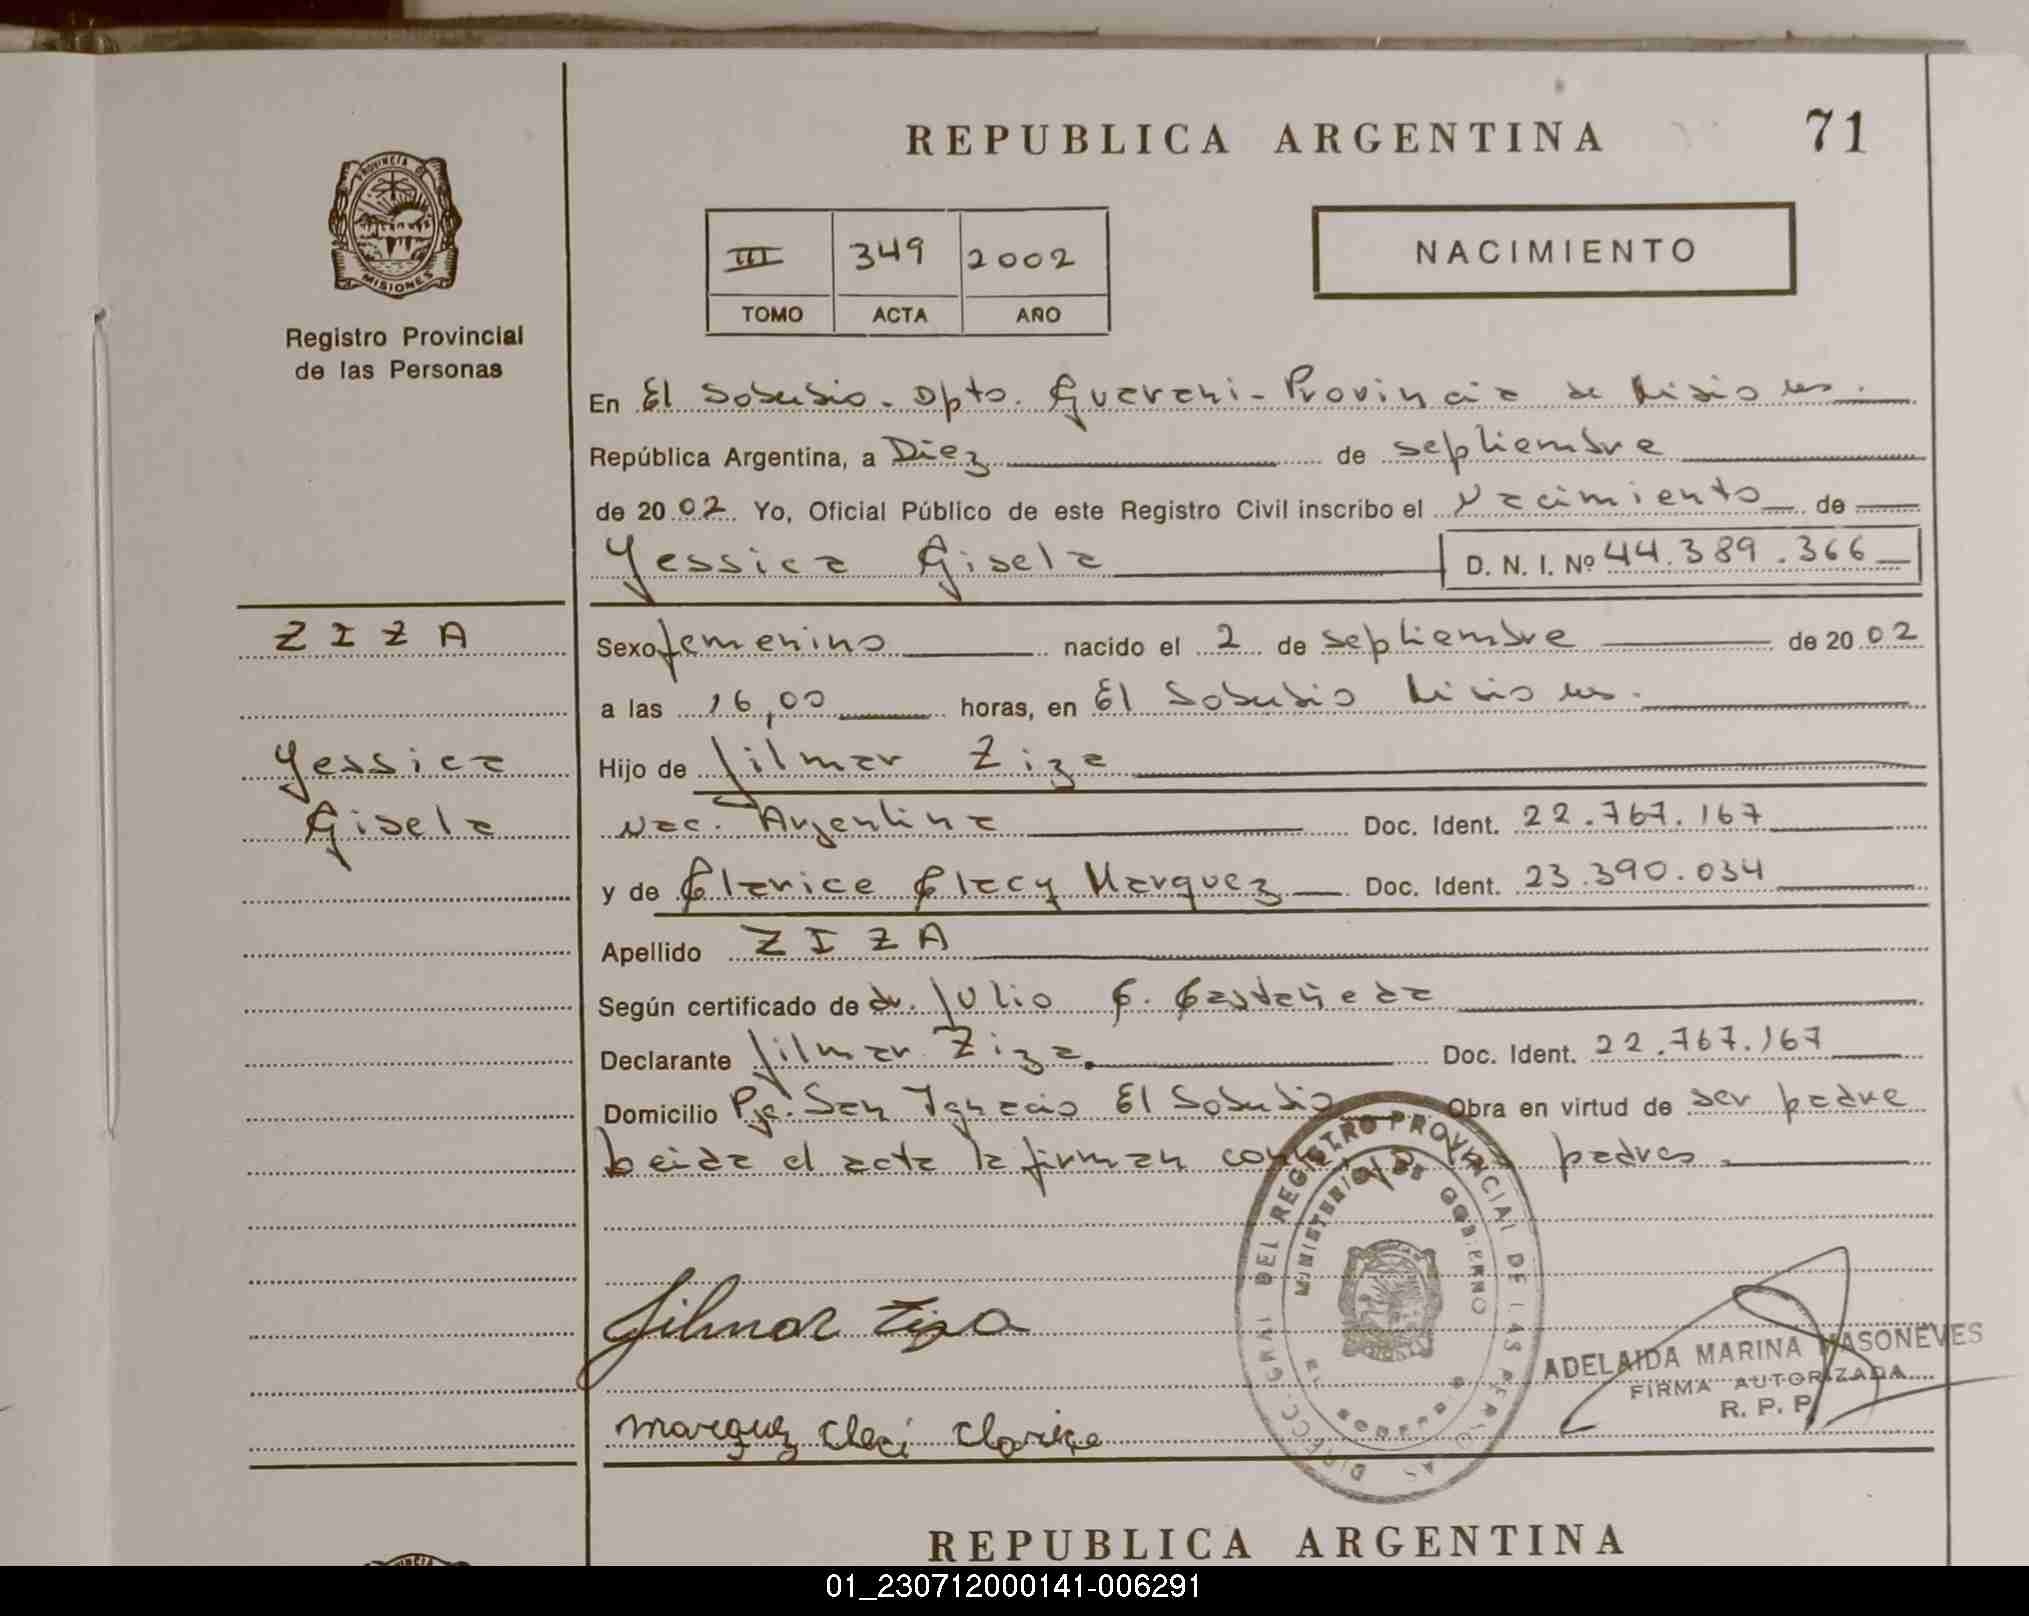 REPUBLICA ARGENTINA
71
PROVINCIA DE
MISIONES
Registro Provincial
de las Personas
III 349 2002
TOMO ACTA AÑO
NACIMIENTO
En El Soberbio - Dpto. Guarani - Provincia de Misiones.
República Argentina, a Diez de septiembre
de 2002 Yo, Oficial Público de este Registro Civil inscribo el Nacimiento de
Yessica Gisela D. N. I. Nº 44.389.366
ZIZA
Yessica
Gisela
Sexo femenino nacido el 2 de septiembre de 2002
a las 16,00 horas, en El Soberbio Misiones.
Hijo de Jilmar Ziza
Nac. Argentina Doc. Ident. 22.767.167
y de Clarice Clecy Marquez Doc. Ident. 23.390.034
Apellido ZIZA
Según certificado de dr. Julio C. Castañeda
Declarante Jilmar Ziza Doc. Ident. 22.767.167
Domicilio Pje. San Ignacio El Soberbio Obra en virtud de ser padre
Leida el acta la firman conmigo los padres.
DIRECC. GRAL DEL REGISTRO PROVINCIAL DE LAS PERSONAS
MINISTERIO DE GOBIERNO
Jilmar Ziza
ADELAIDA MARINA MASONEVES
FIRMA AUTORIZADA
R. P. P.
Marquez Cleci Clarice
REPUBLICA ARGENTINA
01_230712000141-006291